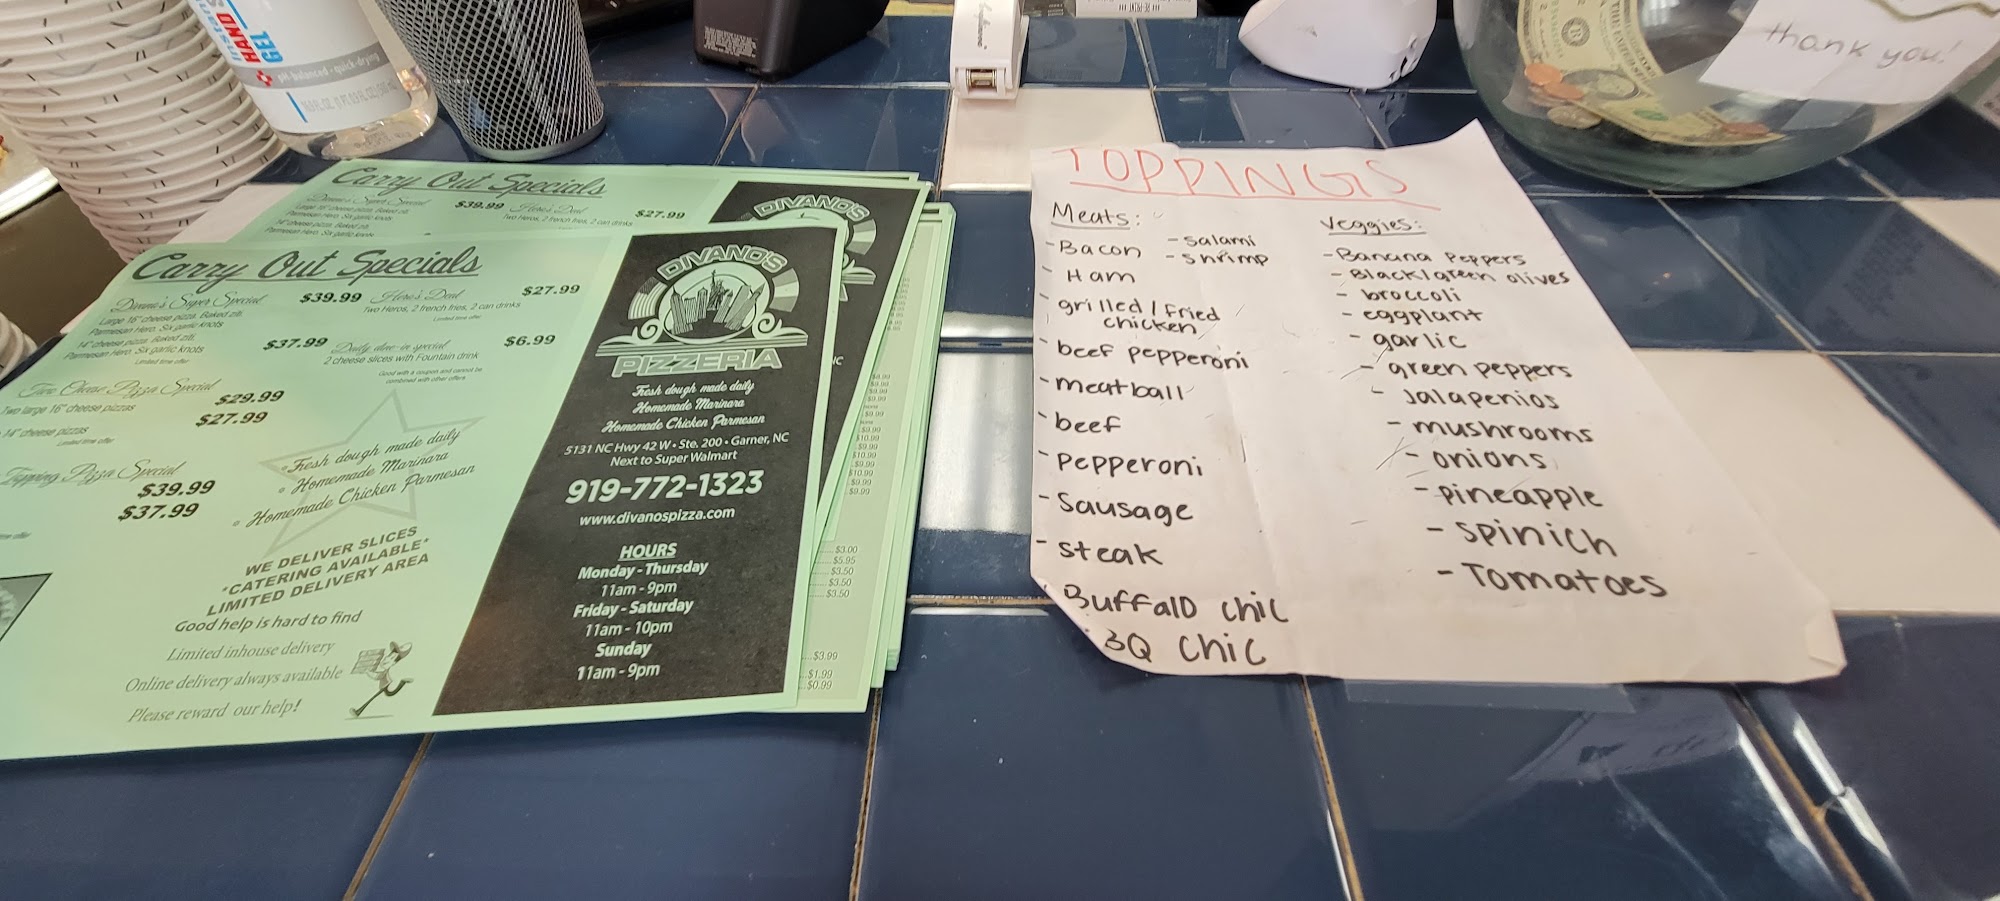 instant
HAND
GEL
pH-balanced • quick-drying
thank you!
Carry Out Specials
$39.99
$27.99
Two Heros, 2 french fries, 2 can drinks
Large 16" cheese pizza. Baked ziti.
Parmesan Hero. Six garlic knots
14" cheese pizza. Baked ziti.
DIVANO'S
Carry Out Specials
Divano's Super Special $39.99
Large 16" cheese pizza. Baked ziti.
Parmesan Hero. Six garlic knots
14" cheese pizza. Baked ziti. $37.99
Parmesan Hero. Six garlic knots
Limited time offer
Hero's Deal $27.99
Two Heros, 2 french fries, 2 can drinks
Limited time offer
Daily dine-in special $6.99
2 cheese slices with Fountain drink
Good with a coupon and cannot be
combined with other offers
Two Cheese Pizza Special
Two large 16" cheese pizzas $29.99
14" cheese pizzas $27.99
Limited time offer
Topping Pizza Special
$39.99
$37.99
• Fresh dough made daily
• Homemade Marinara
• Homemade Chicken Parmesan
WE DELIVER SLICES
*CATERING AVAILABLE*
LIMITED DELIVERY AREA
Good help is hard to find
Limited inhouse delivery
Online delivery always available
Please reward our help!
DIVANO'S
PIZZERIA
Fresh dough made daily
Homemade Marinara
Homemade Chicken Parmesan
5131 NC Hwy 42 W • Ste. 200 • Garner, NC
Next to Super Walmart
919-772-1323
www.divanospizza.com
HOURS
Monday - Thursday
11am - 9pm
Friday - Saturday
11am - 10pm
Sunday
11am - 9pm
$3.00
$5.95
$3.50
$3.50
$3.50
$3.99
$1.99
$0.99
TOPPINGS
Meats:
- Bacon
- Ham
- grilled / Fried
chicken
- beef pepperoni
- meatball
- beef
- pepperoni
- Sausage
- steak
Buffalo chic
BQ chic
- salami
- shrimp
Veggies:
- Banana Peppers
- Black/green olives
- broccoli
- eggplant
- garlic
- green peppers
- Jalapenios
- mushrooms
- onions
- pineapple
- spinich
- Tomatoes